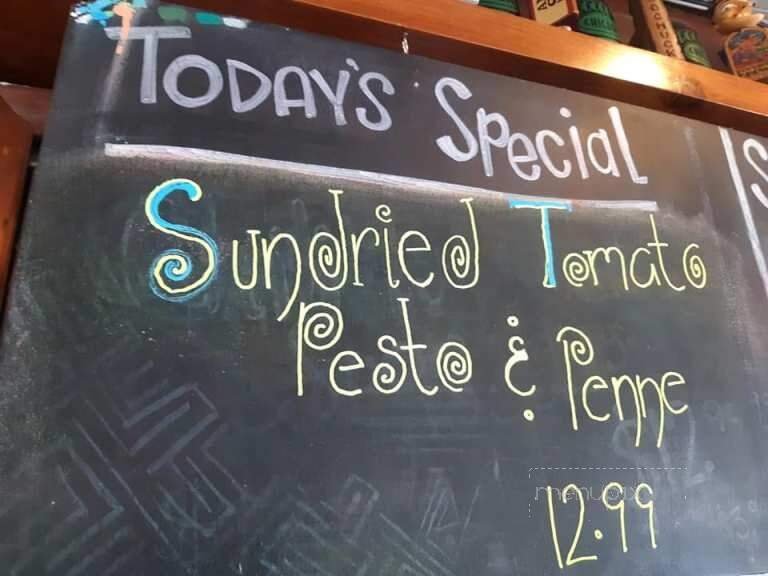 TODAY'S Special
Sundried Tomato
Pesto & Penne
12.99
menupix